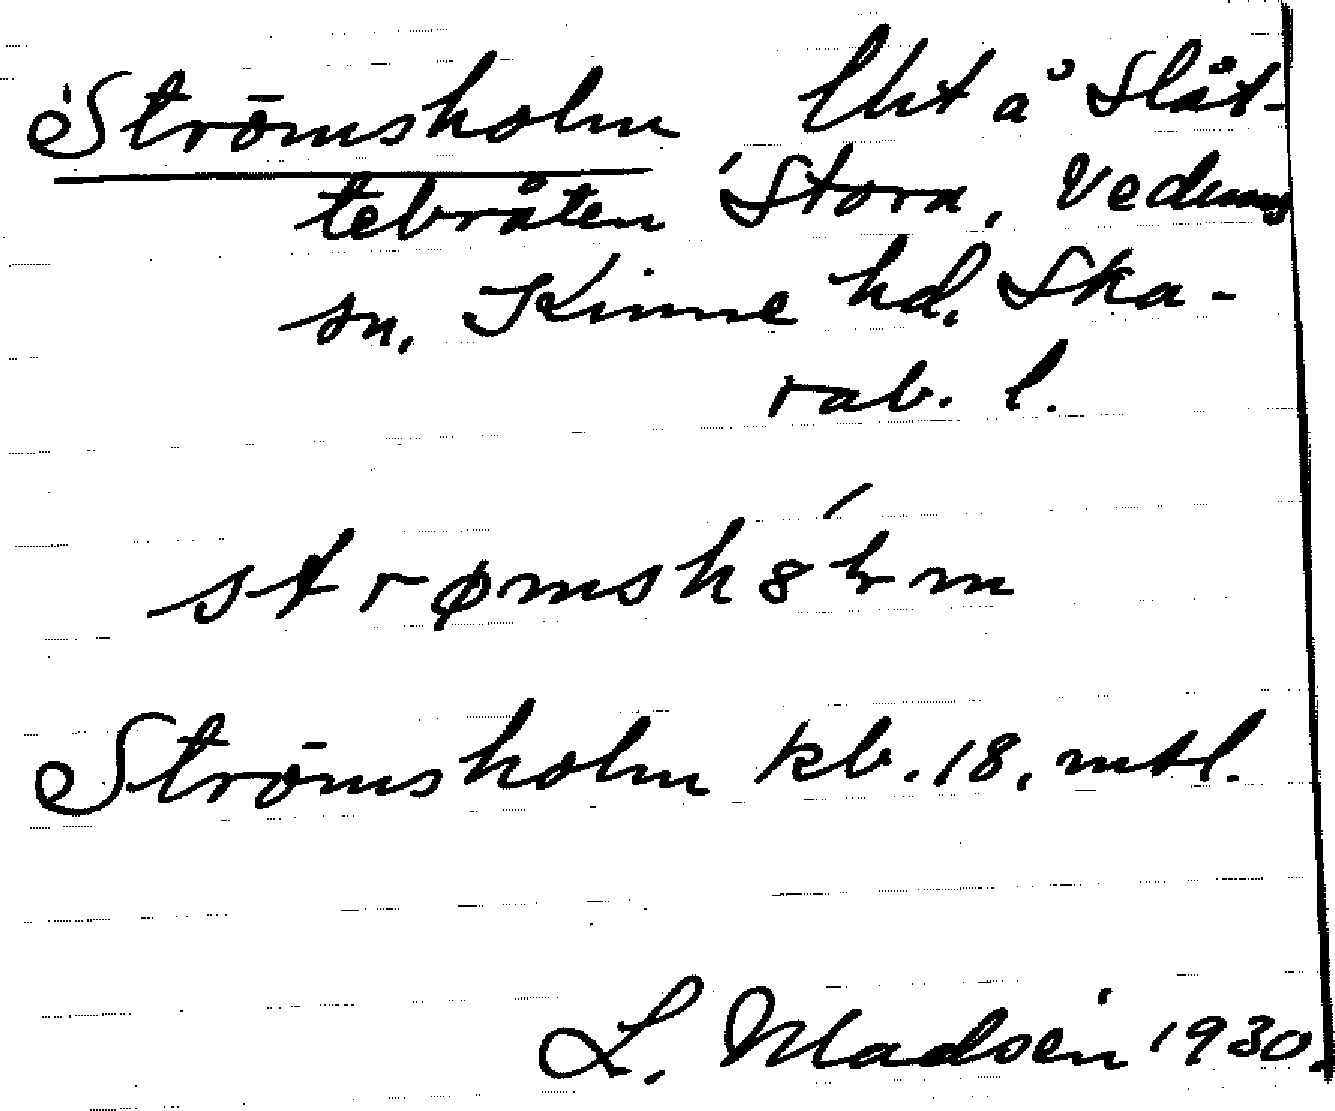 Strömsholm lht å Slåt-
tebråten Stora, Vedums
sn, Kinne hd, Ska-
rab. l.
strømshȣ́ɫm
Strömsholm kb. 18, mtl.
L. Madsén 1930.